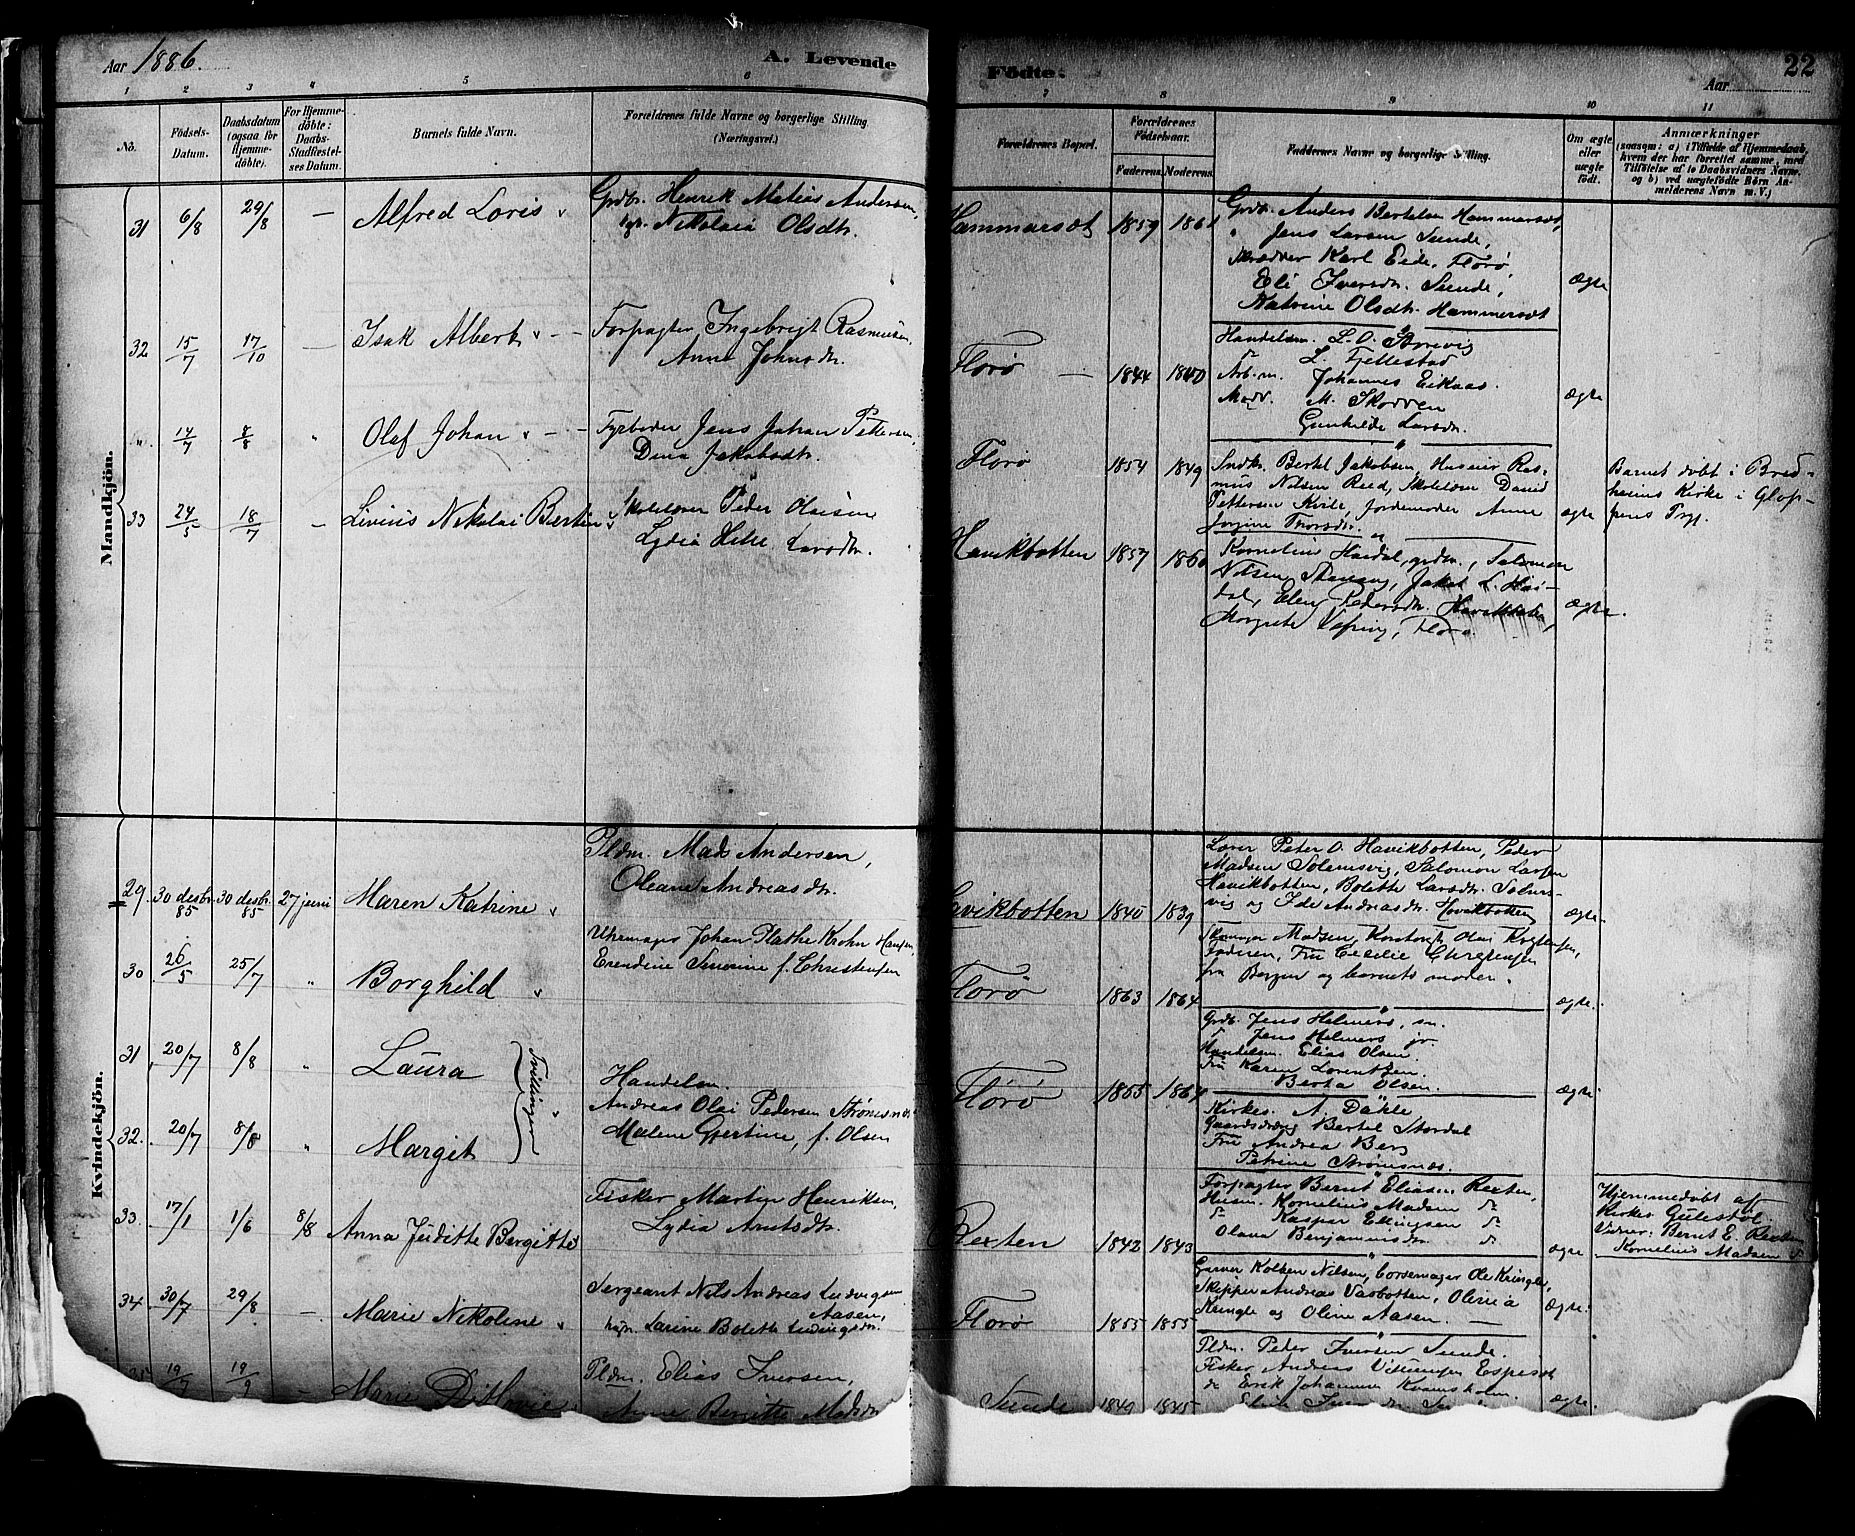 Aar 1886.
A. Levende
Fødte.
Aar
22
1 2 3 4 5 6 7 8 9 10 11
No.
Fødsels-
Datum.
Daabsdatum
(ogsaa for
Hjemme-
døbte).
For Hjemme-
døbte:
Daabs-
Stadfæstel-
ses Datum.
Barnets fulde Navn.
Forældrenes fulde Navne og borgerlige Stilling
(Næringsvei.)
Forældrenes Bopæl.
Forældrenes
Fødselsaar.
Faderens. Moderens.
Faddernes Navne og borgerlige Stilling.
Om ægte
eller
uægte
født.
Anmærkninger
(saasom: a) i Tilfælde af Hjemmedaab,
hvem der har forrettet samme, med
Tilføielse af to Daabsvidners Navne,
og b) ved uægtefødte Børn An-
melderens Navn m. V.)
Mandkjön.
31 6/8 29/8 — Alfred Loris
Grdbr. Henrik Matias Andersen,
Nikolaia Olsdtr.
Hammersæt 1859 1861
Grdb. Anders Bertelsen Hammersæt,
Jens Larsen Sunde,
Skrædder Karl Eide, Florø,
Eli Iversdtr. Sunde,
Katrine Olsdtr. Hammersæt
Ægte
32 15/7 17/10 — Isak Albert
Forpagter Ingebrigt Rasmussen,
Anna Johnsdtr.
Florø — 1844 1840
Handelsm. L. O. Storevig
L. Fjellestad
Arb.m. Johannes Eikaas.
M. Skorven
Gunhilde Larsdtr.
Ægte
" 14/7 8/8 " Olaf Johan
Fyrbøder Jens Johan Pettersen,
Dina Jakobsdtr.
Florø 1854 1849
Sndk. Bertel Jakobsen, Huseier Ras-
mus Nilsen Reed, Skolelærer David
Pettersen Kirle, Jordemoder Anne
Jorgine Thorsdtr.
ægte
Barnet døbt i Bred-
heims Kirke i Glop-
pens Prgj.
33 24/5 18/7 — Livius Nikolai Bertin
Skolelærer Peder Olaisen
Lydia Larsdtr.
Havikbotten 1857 1860
Kornelius Haidal, grdm., Salomon
Nilsen Jakob L. Hai-
dal, Elen Pedersdtr. Havikbotten,
Margrete Florø.
Ægte.
Kvindekjön.
29. 30 desbr. 85 30 desbr. 85 27 juni Maren Katrine
Pldm. Mads Andersen,
Oleane Andreasdtr.
Havikbotten 1840 1839
Lærer Peter O. Havikbotten, Peder
Madsen Solemsvig, Salomon Larsen
Havikbotten, Bolette Larsdtr. Solems-
vig og Ida Andreasdtr. Havikbotten
Ægte.
30. 26/5 25/7 " Borghild
Uhrmager Johan Plathe Krohn Hansen,
Erendine Severine f. Christensen
Florø 1863 1864
Madsen, Olai
Faderen, Fru Cecilie Christensen
fra Bergen og barnets moder.
ægte.
31 20/7 8/8 " Laura
Tvillinger
Handelsm.
Andreas Olai Pedersen Strømsnæs
Malene Gjertine, f. Olsen
Florø 1855 1864
Grdb. Jens Helmers, sn.
Jens Helmers jr.
Handelsm. Elias Olsen.
Fru Karen Lorentzen
Berta Olsen.
ægte:
32. 20/7 8/8 " Margit
Kirkes. A. Døkle
Bertel Stordal
Fru Andrea Berg
Petrine Strømsnæs.
33. 17/1 1/6 8/8 Anna Juditte Bergitte
Fisker Martin Henriksen,
Lydia Arntsdtr.
Rexten 1842 1843
Forpagter Bernt Eliasen Rexten,
Husm. Kornelius Madsen do
do Kaspar Ellingsen do
Olava Benjaminsdtr. do
ægte
Hjemmedøbt af
Kirkes. Gulestøl.
Vidner: Bernt E. Rexten
Kornelius Madsen do
34 30/7 29/8 — Marie Nikoline
Sergeant Nils Andreas Ludvigsen
Aasen,
Larine Bolette Ludvigsdtr.
Florø 1855 1855
Garver Kolben Nilsen, Corsemager Ole Kringle,
Skipper Andreas Vasbotten, Olivia
Kringle og Oline Aasen. —
Ægte:
19/7 19/9 — Marie
Pldm. Elias Iversen,
Anne Berritte Madsdtr.
Sunde 1849 1845
Pldm. Peder Iversen Sunde.
Fisker Andreas Espeset
do Erik Johannesen Kvamsholm.
Ægte.